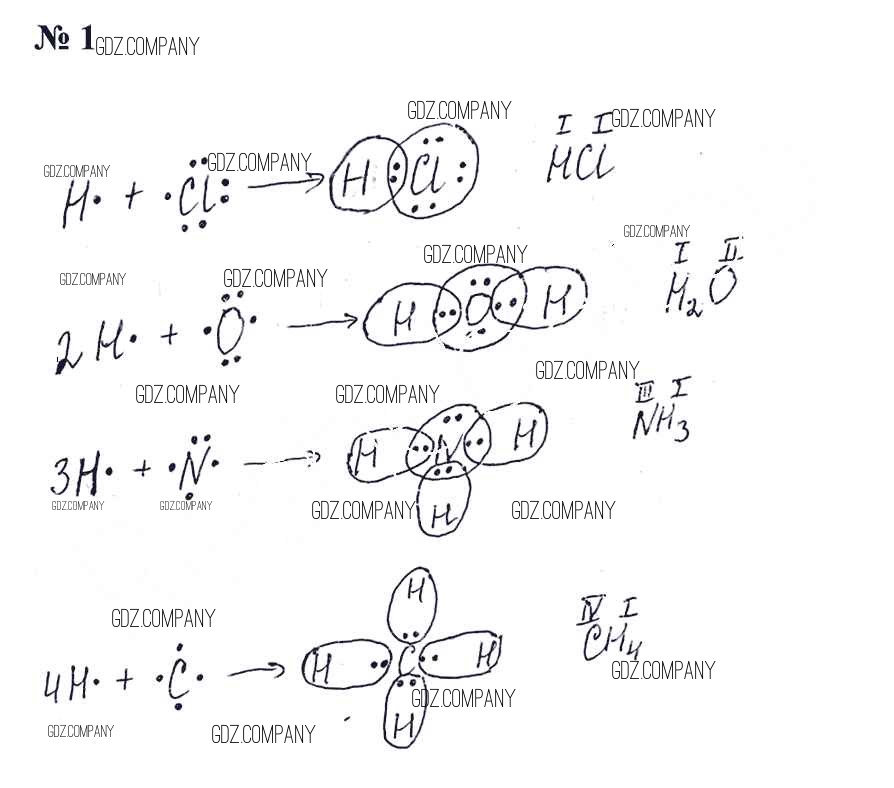 № 1 GDZ.COMPANY
GDZ.COMPANY I I GDZ.COMPANY
GDZ.COMPANY GDZ.COMPANY HCl
H· + ·Cl: → H:Cl:
GDZ.COMPANY
GDZ.COMPANY I II
GDZ.COMPANY GDZ.COMPANY H₂O
2H· + ·O· → H:O:H
GDZ.COMPANY
GDZ.COMPANY GDZ.COMPANY III I
NH₃
3H· + ·N· → H:N:H
GDZ.COMPANY GDZ.COMPANY GDZ.COMPANY GDZ.COMPANY
H
H
GDZ.COMPANY IV I
CH₄
4H· + ·C· → H:C:H
GDZ.COMPANY
GDZ.COMPANY
H
GDZ.COMPANY GDZ.COMPANY